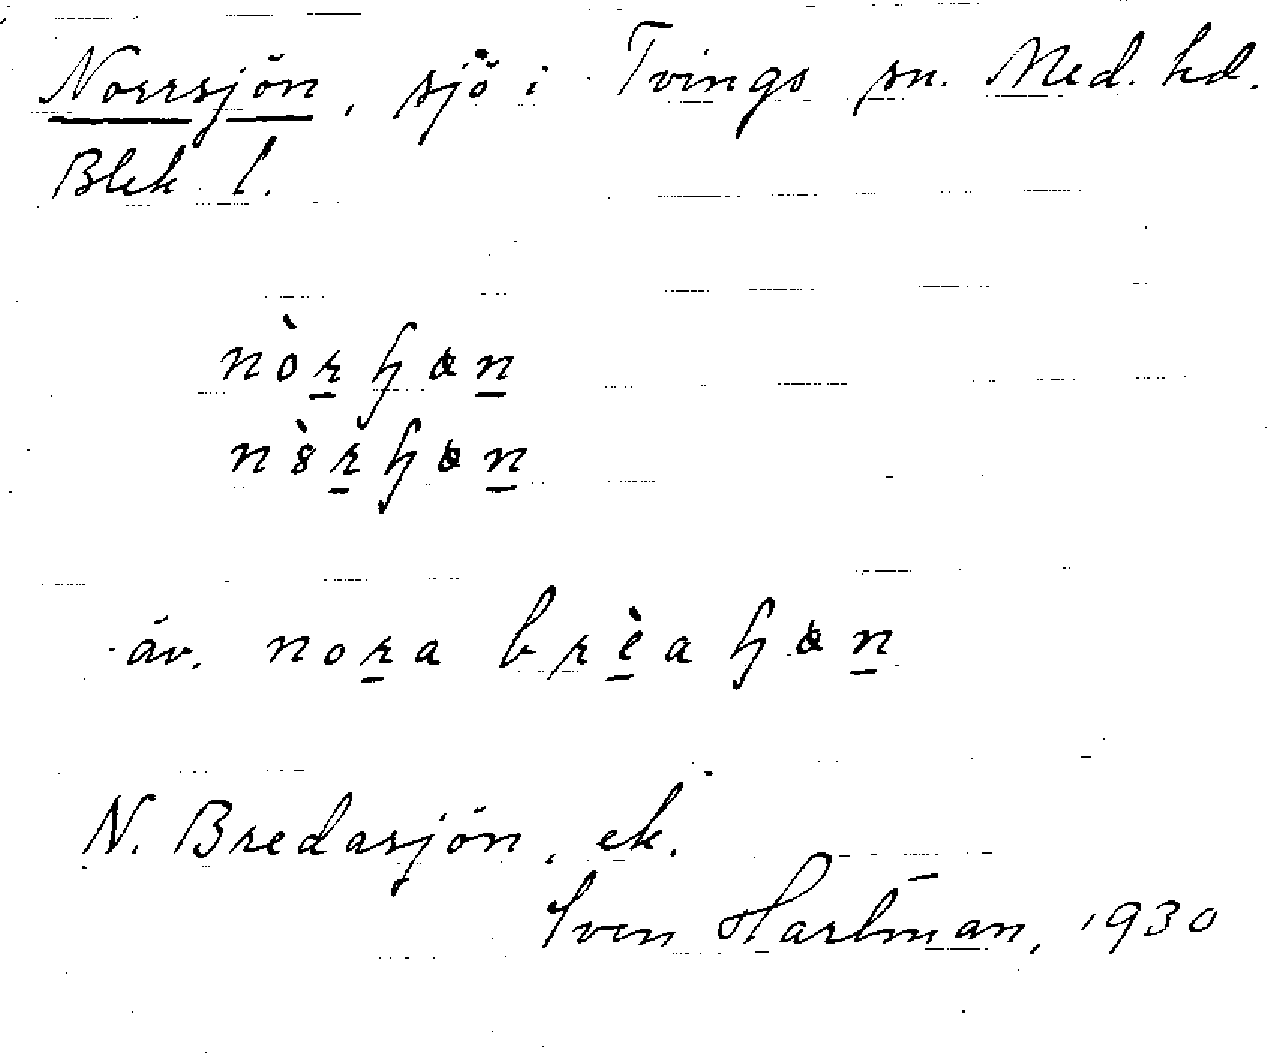 Norrsjön, sjö i Tvings sn. Med. hd.
Blek. l.
nòrɧøn
nèrɧøn
äv. nora brèaɧøn
N. Bredasjön, ek.
Sven Hartman, 1930